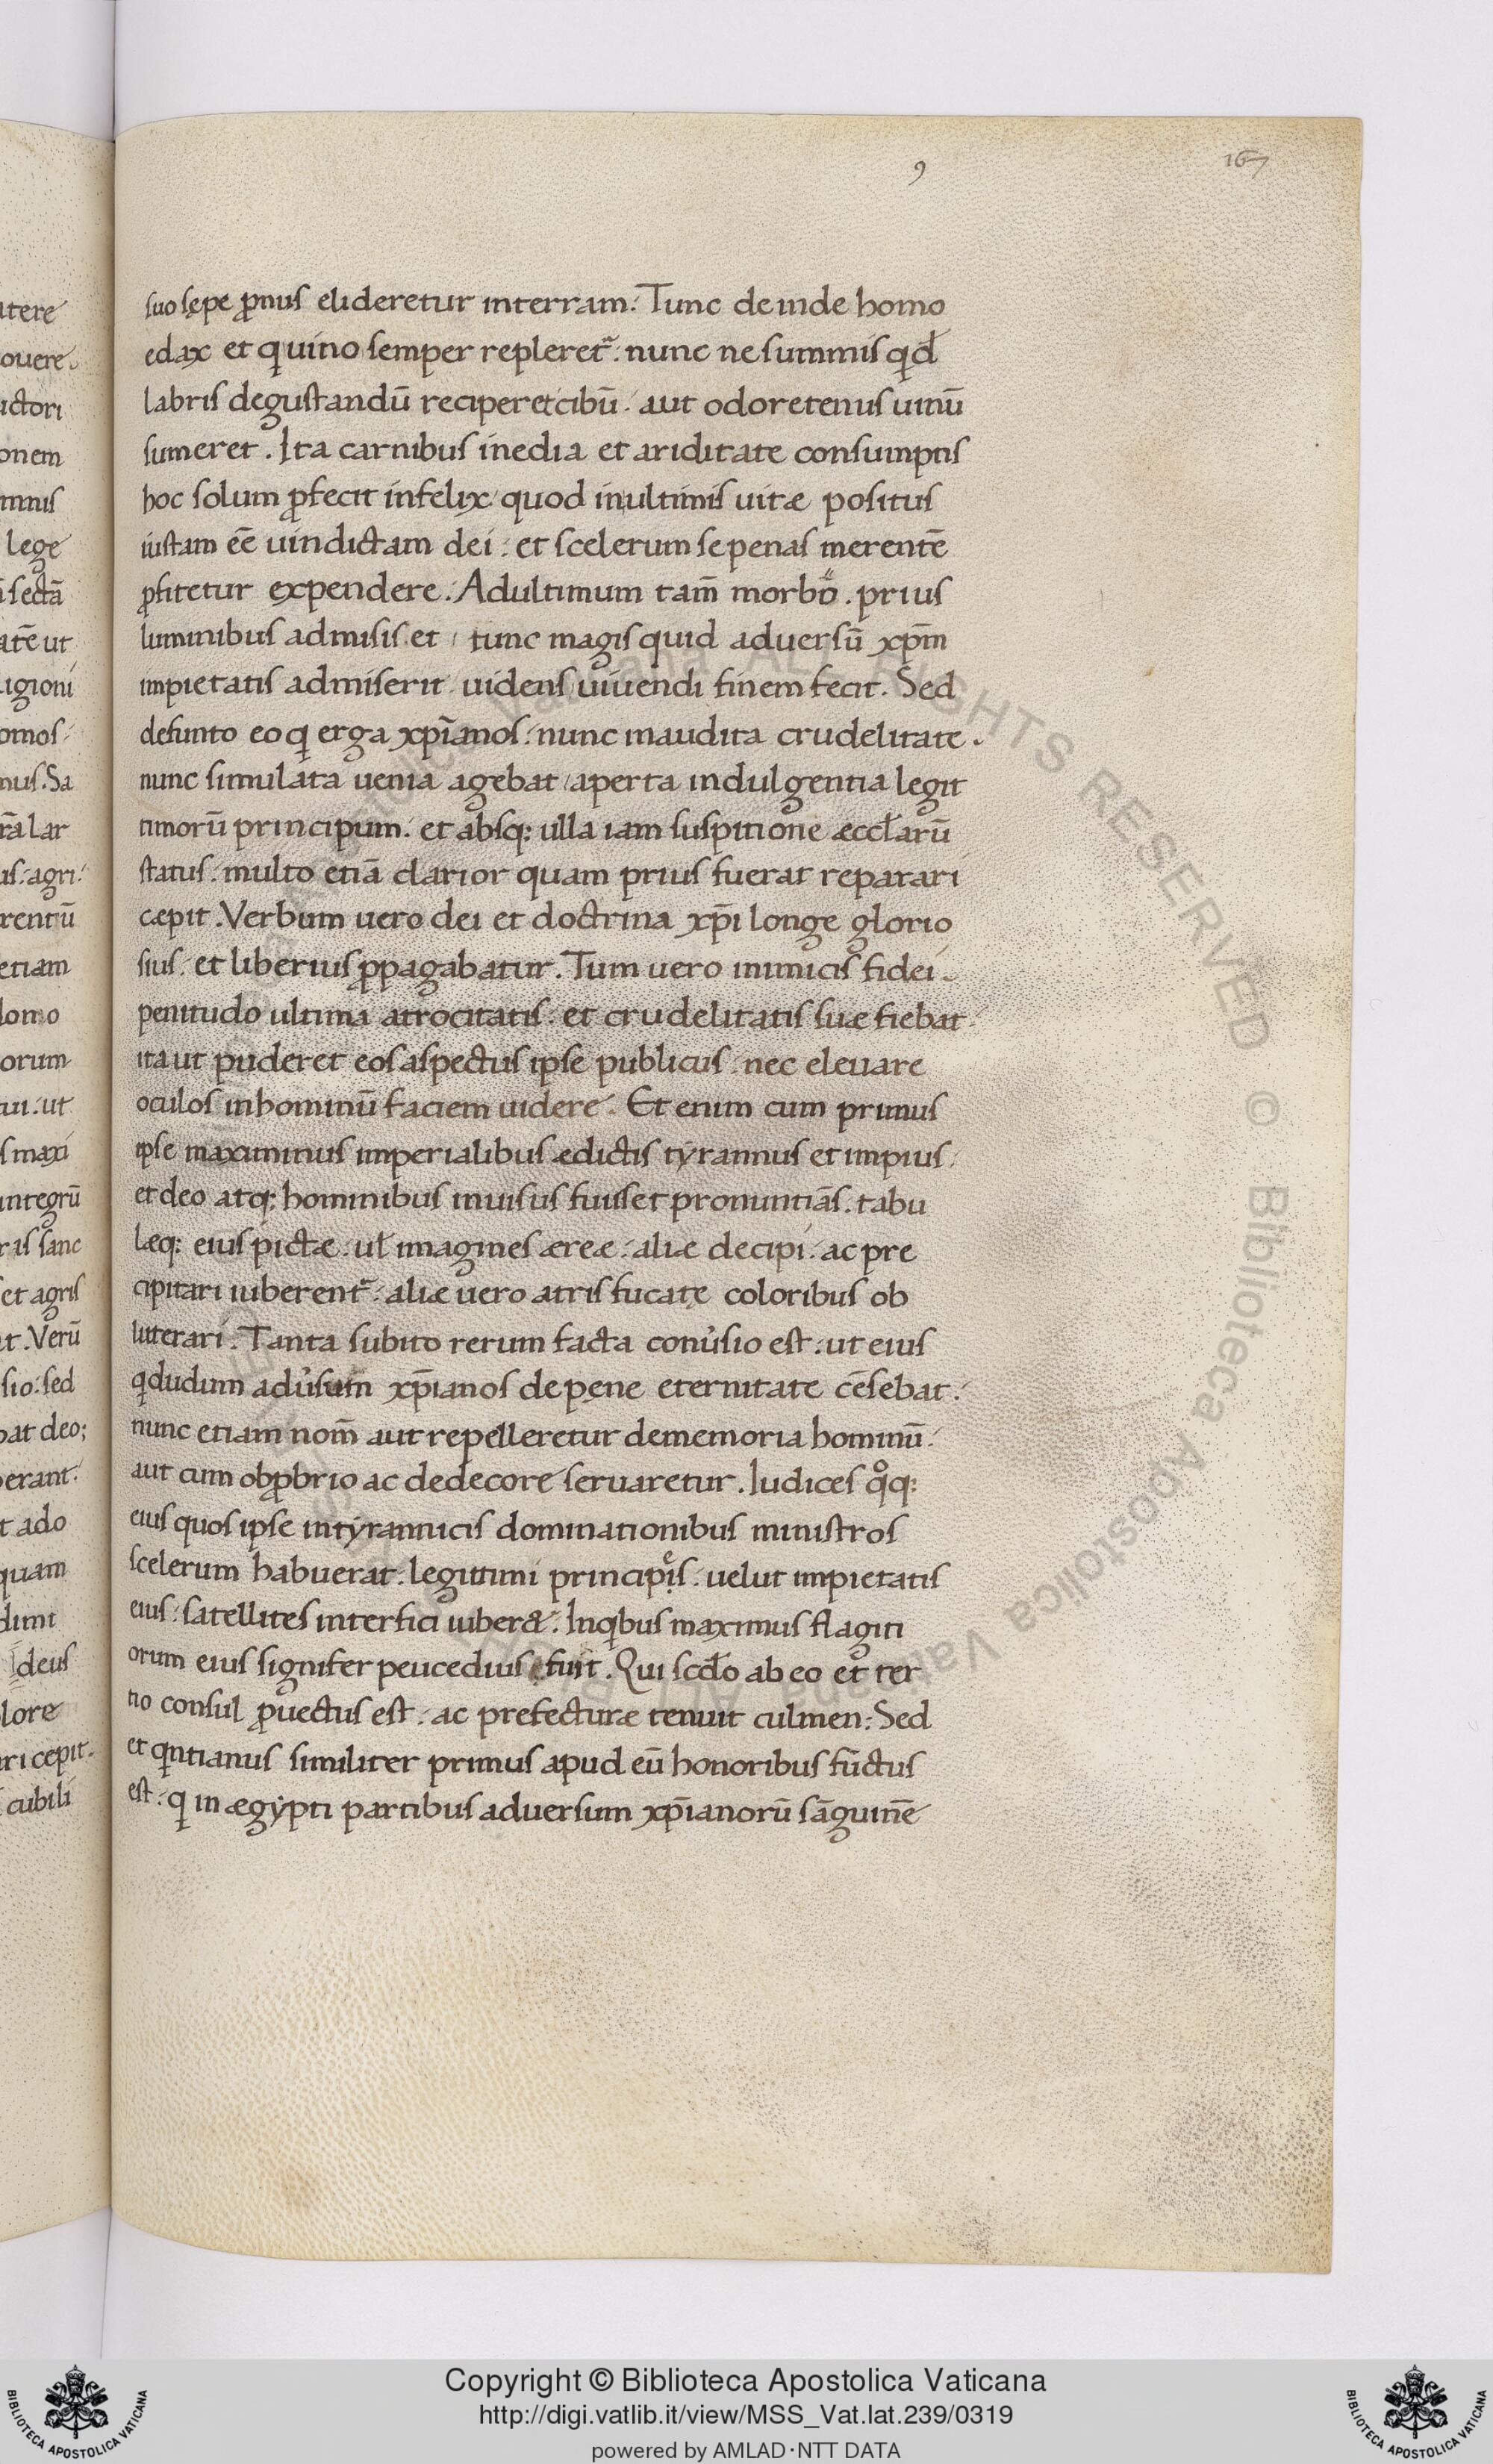 9
167
suo sępe ꝓnus elideretur interram. Tunc deinde homo
edax et qui uino semper repleret᷑. nunc ne summis qͥd
labris degustandū reciperet cibū. aut odoretenus uinū
sumeret. Ita carnibus inedia et ariditate consumptis
hoc solum ꝓfecit infelix quod inultimis uitæ positus
iustam eē uindictam dei. et scelerum se penas merentē
ꝓfitetur expendere. Adultimum tam̄ morbo. prius
luminibus admisis et tunc magis quid aduersū xp̄m
impietatis admiserit uidens uiuendi finem fecit. Sed
defunto eo qͥ erga xp̄ianos. nunc inaudita crudelitate.
nunc simulata uenia agebat aperta indulgentia legit
timorū principum. et absq; ulla iam suspitione æccl̄arū
status. multo etiā clarior quam prius fuerat reparari
cæpit. Verbum uero dei et doctrina xp̄i longe glorio
sius. et liberius ꝓpagabatur. Tum uero inimicis fidei.
penitudo ultima atrocitatis. et crudelitatis suæ fiebat
ita ut puderet eos aspectus ipse publicus. nec eleuare
oculos inhominū faciem uidere. Et enim cum primus
ipse maximinus imperialibus ædictis tyrannus et impius.
et deo atq; hominibus inuisus fuisset pronuntiās. tabu
læq; eius pictæ. ul̄ imagines æreæ. aliæ decipi. ac pre
cipitari iuberent᷑. aliæ uero atris fucatę coloribus ob
litterari. Tanta subito rerum facta conūsio est. ut eius
qͥ dudum adūsum xp̄ianos de pęne eternitate cēsebat.
nunc etiam nom̄ aut repelleretur dememoria hominū.
aut cum obꝓbrio ac dedecore seruaretur. Iudices qͦq;
eius quos ipse intyrannicis dominationibus ministros
scelerum habuerat. legittimi principeis. uelut impietatis
eius. satellites interfici iuber&. Inqͥbus maximus flagiti
orum eius signifer peucedius fuit. Qui scd̄o ab eo et ter
tio consul ꝓuectus est. ac prefecturæ tenuit culmen. Sed
et qͥntianus similiter primus apud eū honoribus fūctus
est. qͥ in ægypti partibus aduersum xp̄ianorū sāguinē
itere
ouere.
ictori
onem
lege
sectā
atē ut
igioni
omos
nus. Sa
rā lar
us. agri.
rentū
etiam
lomo
orum
ui. ut
s maxi
integrū
ras sanc
et agris
t. Verū
sio. sed
bat deo;
erant.
t ado
quam
dimt
deus
lore
ri cepit.
cubili
ALL RIGHTS RESERVED © Biblioteca Apostolica Vaticana
BIBLIOTECA APOSTOLICA VATICANA
Copyright © Biblioteca Apostolica Vaticana
http://digi.vatlib.it/view/MSS_Vat.lat.239/0319
powered by AMLAD·NTT DATA
BIBLIOTECA APOSTOLICA VATICANA